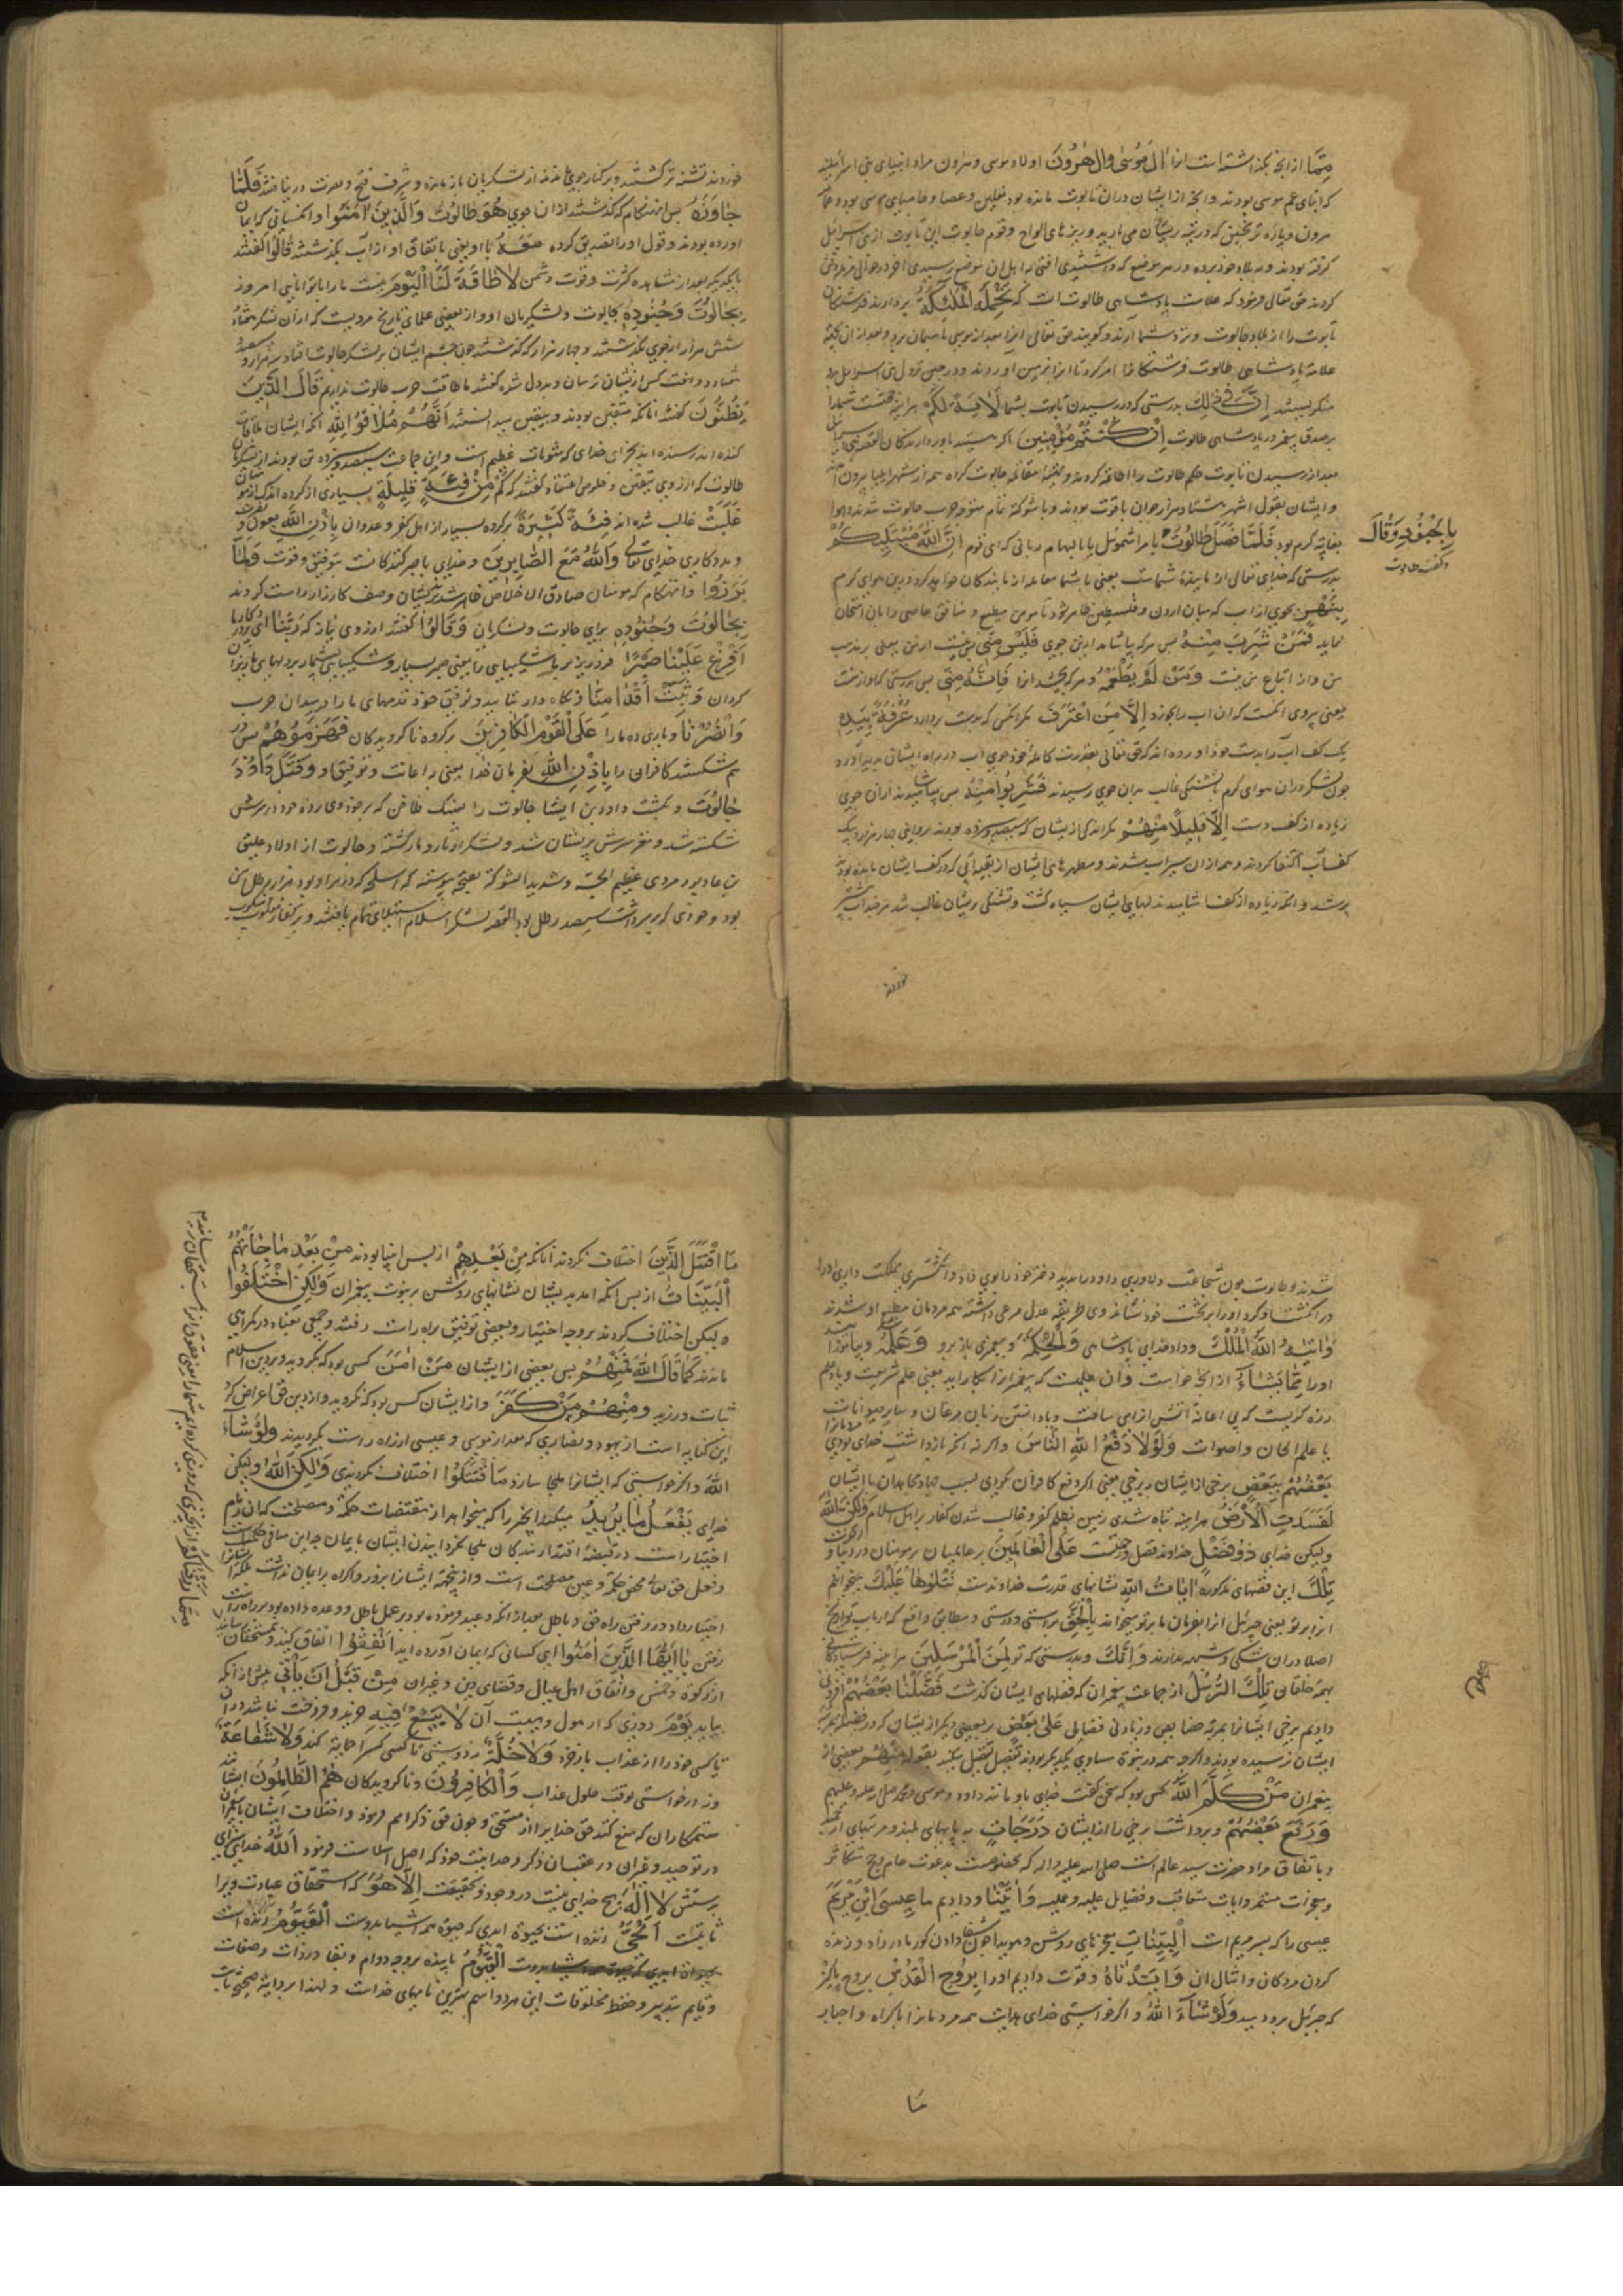 مِمَّا از آنچه بگذاشته است آنرا اٰلُ مُوسٰى وَاٰلُ هٰرُونَ اولاد موسی و هرون مراد انبیای بنی اسرائیلند
که ابنای عم موسی بودند و آنچه از ایشان دران تابوت مانده بود نعلین و عصا و جامهای موسی بود و
هرون و پاره ترنجبین که در تیه بریشان می بارید و ریزهای الواح و قوم جالوت این تابوت از بنی اسرائیل
گرفته بودند و به بلاد خود برده و در هر موضع که
کردند حق تعالی فرمود که علامت پادشاهی طالوت آنست که تَحْمِلُهُ الْمَلٰئِكَةُ بردارند فرشتگان
تابوت را از بلاد جالوت و نزد شما آرند و گویند حق تعالی آنرا بعد از موسی باسمان برد و بعد از ان بجهة
علامة پادشاهی طالوت فرشتگانرا امر کرد تا آنرا بزمین آوردند
اِنَّ فٖى ذٰلِكَ بدرستی که در رسیدن تابوت بشما لَاٰيَةً لَكُمْ هر اینه حجتست شما را
بر صدق پیغمبر در پادشاهی طالوت اِنْ كُنْتُمْ مُؤْمِنٖينَ اگر هستید باور دارندگان القصه بنی اسرائیل
بعد از رسیدن تابوت حکم طالوت را اطاعة کردند و همه از شهر ایلیا بیرون آمدند
و ایشان بقول اشهر هشتاد هزار جوان با قوت بودند و با شوکة تمام متوجه حرب جالوت شدند و هوا
بغایة گرم بود فَلَمَّا فَصَلَ طَالُوتُ با مر اشموئیل یا بالهام ربانی که ای قوم اِنَّ اللهَ مُبْتَلٖيكُمْ
بِالْجُنُودِ وَقَالَ
و گفت طالوت
بدرستی که خدای تعالی آزماینده شماست یعنی با شما معامله آزمایندگان خواهد کرد درین هوای گرم
بِنَهَرٍ بجوی از آب که میان اردن و فلسطین ظاهر شود تا مومن مطیع و منافق عاصی را بان امتحان
نماید فَمَنْ شَرِبَ مِنْهُ پس هر که بیاشامد ازین جوی فَلَيْسَ مِنّٖى پس نیست از من یعنی بر مذهب
من و از اتباع من نیست وَمَنْ لَمْ يَطْعَمْهُ و هر که نچشد انرا فَاِنَّهُ مِنّٖى پس بدرستی که او از منست
یعنی پیروی آنکست که ان آب را نخورد اِلَّا مَنِ اغْتَرَفَ مگر آنکس که بدست بردارد غُرْفَةً بِيَدِهٖ
یک کف آب را بدست خود آورده اند که حق تعالی بقدرت کامله خود جوی آب در راه ایشان پدید آورد
چون لشکر دران هوای گرم با تشنگی غالب بدان جوی رسیدند فَشَرِبُوا مِنْهُ پس بیاشامیدند ازان جوی
زیاده از کف دست اِلَّا قَلٖيلًا مِنْهُمْ مگر اندکی از ایشان که سیصد و سیزده بودند بروایتی چهار هزار بیک
کف آب اکتفا کردند و همه ازان سیراب شدند و مطهرهای ایشان از بقیه آبی که در کف ایشان مانده بود
پر شد و آنکه زیاده از کف آشامیدند لبهای ایشان سیاه گشت و تشنگی بریشان غالب شد هر چند آب بیشتر
خوردند
خوردند تشنه تر گشتند و بر کنار جوی بماندند از لشکریان باز ماندند و شرف فتح و نصرت در نیافتند فَلَمَّا
جَاوَزَهُ پس آنهنگام که گذشتند ازان جوی هُوَ طالوت وَالَّذٖينَ اٰمَنُوا و آنکسانی که ایمان
آورده بودند و قول او را تصدیق کرده مَعَهُ با او یعنی باتفاق او از آب بگذشتند قَالُوا گفتند
با یکدیگر بعد از مشاهده کثرت و قوت دشمن لَا طَاقَةَ لَنَا الْيَوْمَ نیست ما را توانایی امروز
بِجَالُوتَ وَجُنُودِهٖ بجالوت و لشکریان او و از بعضی علمای تاریخ مرویست که ازان لشکر هفتاد
شش هزار از جوی نگذشتند و چهار هزار که گذشتند چون چشم ایشان بر لشکر جالوت افتاد سه هزار و ششصد
هشتاد و هفت کس از ایشان ترسان و بددل شده گفتند ما طاقت حرب جالوت نداریم قَالَ الَّذٖينَ
يَظُنُّونَ گفتند آنانکه متیقن بودند و بیقین میدانستند اَنَّهُمْ مُلَاقُوا اللهِ آنکه ایشان ملاقات
کننده اند رسنده اند بجزای خدای که مثوبات عظیم است و این جماعت سیصد و سیزده تن بودند از لشکریان
طالوت که از روی تیقن و خلوص اعتقاد گفتند که كَمْ مِنْ فِئَةٍ قَلٖيلَةٍ بسیاری از گروه اندک از مومنان
غَلَبَتْ غالب شده اند فِئَةً كَثٖيرَةً بر گروه بسیار از اهل کفر و عدوان بِاِذْنِ اللهِ بعون و نصرت
و مددکاری خدای تعالی وَاللهُ مَعَ الصَّابِرٖينَ و خدای با صبر کنندگانست بتوفیق و قوت وَلَمَّا
بَرَزُوا و آنهنگام که مومنان صادق الاخلاص ظاهر شدند و صف کارزار راست کردند
لِجَالُوتَ وَجُنُودِهٖ برای جالوت و لشکریان وَقَالُوا گفتند از روی نیاز که رَبَّنَا ای پروردگار ما
اَفْرِغْ عَلَيْنَا صَبْرًا فرو ریز بر ما شکیبایی را یعنی صبر بسیار و شکیبایی بیشمار بر دلهای ما ریزان
گردان وَثَبِّتْ اَقْدَامَنَا و نگاه دار بتایید و توفیق خود قدمهای ما را در میدان حرب
وَانْصُرْنَا و یاری ده ما را عَلَى الْقَوْمِ الْكَافِرٖينَ بر گروه ناگرویدگان فَهَزَمُوهُمْ پس در
هم شکستند کافران را بِاِذْنِ اللهِ بفرمان خدا یعنی باعانت و توفیق او وَقَتَلَ دَاوُدُ
جَالُوتَ و بکشت داود بن ایشا جالوت را بسنگ فلاخن که بر خود وی زد و خود در سرش
شکسته شد و مغز سرش پریشان شد و لشکر او تار و مار گشته و جالوت از اولاد عملیق
بن عاد بود مردی عظیم الجثه و شدید الشوکة که اسلحه که در بر او بود هزار رطل آهن
بود و خودی که بر سر داشت سیصد رطل بود القصه لشکر اسلام استیلای تمام یافتند و بر کفار
شدند و طالوت چون شجاعت و دلاوری داود را بدید دختر خود را بوی داد و انگشتری مملکت داری او را
در انگشت او کرد و او را بر تخت خود نشاند وی طریقه عدل مرعی داشته همه مردمان مطیع او شدند
وَاٰتٰيهُ اللهُ الْمُلْكَ و داد خدای پادشاهی وَالْحِكْمَةَ و پیغمبری باز برو وَعَلَّمَهُ و بیاموزد
او را مِمَّا يَشَاءُ از آنچه خواست و آن علمیست که پیغمبرانرا بکار آید یعنی علم شریعت و یا علم
زره گریست که بی اعانة آتش از آهن ساخت و یا دانستن زبان مرغان و سایر حیوانات
یا علم الحان و اصوات وَلَوْلَا دَفْعُ اللهِ النَّاسَ و اگر نه آنکه باز داشت خدای بودی مردمانرا
بَعْضَهُمْ بِبَعْضٍ برخی از ایشان ببرخی یعنی اگر دفع کافران نکردی بسبب جهاد مجاهدان با ایشان
لَفَسَدَتِ الْاَرْضُ هر اینه تباه شدی زمین بظلم کفر و غالب شدن کفار بر اهل اسلام وَلٰكِنَّ اللهَ
ولیکن خدای ذُو فَضْلٍ خداوند فضل و رحمتست عَلَى الْعَالَمٖينَ بر عالمیان بر مومنان در دنیا و آخرت
تِلْكَ این قصهای مذکوره اٰيَاتُ اللهِ نشانهای قدرت خداوندست نَتْلُوهَا عَلَيْكَ میخوانیم
آنرا بر تو یعنی جبرئیل آنرا بفرمان ما بر تو میخواند بِالْحَقِّ براستی و درستی و مطابق واقع که ارباب تواریخ
اصلا دران شکی و شبهه ندارند وَاِنَّكَ و بدرستی که تو لَمِنَ الْمُرْسَلٖينَ هر اینه از فرستادگانی
بهمه خلقان تِلْكَ الرُّسُلُ از جماعت پیغمبران که قصهای ایشان گذشت فَضَّلْنَا بَعْضَهُمْ افزونی
دادیم برخی ایشانرا بمرتبه خصایص و زیادتی فضایل عَلٰى بَعْضٍ بر بعضی دیگر از ایشان که در فضیلت بمرتبه
ایشان نرسیده بودند و اگر چه همه در نبوة مساوی یکدیگر بودند تفصیل تفضیل میکند بقوله مِنْهُمْ بعضی از
پیغمبران مَنْ كَلَّمَ اللهُ کسی بود که سخن گفت خدای باو مانند داود و موسی و محمد صلی الله علیه و علیهم
وَرَفَعَ بَعْضَهُمْ و برداشت برخی را از ایشان دَرَجَاتٍ به پایهای بلند و مرتبهای ارجمند
و باتفاق مراد حضرت سید عالم است صلی الله علیه و اله که مخصوصست بدعوت عام و حجج متکاثر
و معجزات مستمر و ایات متعاقب و فضایل علیه و عملیه وَاٰتَيْنَا و دادیم ما عٖيسَى ابْنَ مَرْيَمَ
عیسی را که پسر مریم است الْبَيِّنَاتِ معجزهای روشن و هویدا چون شفا دادن کور مادر زاد و زنده
کردن مردگان و امثال ان وَاَيَّدْنَاهُ و قوت دادیم او را بِرُوحِ الْقُدُسِ بروح پاکیزه
که جبرئیل بود وَلَوْ شَاءَ اللهُ و اگر خواستی خدای هدایت همه مردمانرا باکراه و اجبار
مَا
مَا اقْتَتَلَ الَّذٖينَ اختلاف نکردند آنانکه مِنْ بَعْدِهِمْ از پس انبیا بودند مِنْ بَعْدِ مَا جَاءَتْهُمُ
الْبَيِّنَاتُ از پس آنکه آمد بدیشان نشانهای روشن بر نبوت پیغمبران وَلٰكِنِ اخْتَلَفُوا
ولیکن اختلاف کردند بر وجه اختیار و بعضی بتوفیق براه راست رفتند و جمعی بعناد در گمراهی
ماندند كما قال الله فَمِنْهُمْ پس بعضی از ایشان مَنْ اٰمَنَ کسی بود که بگروید و بر دین اسلام
ثبات ورزید وَمِنْهُمْ مَنْ كَفَرَ و از ایشان کس بود که نگروید و از دین حق اعراض کرد
این کنایه است از یهود و نصاری که بعد از موسی و عیسی از راه راست بگردیدند وَلَوْ شَاءَ
اللهُ و اگر خواستی که ایشانرا ملجا سازد مَا اقْتَتَلُوا اختلاف نکردندی وَلٰكِنَّ اللهَ ولیکن
خدای يَفْعَلُ مَا يُرٖيدُ میکند آنچیز را که میخواهد از مقتضیات حکمة و مصلحت که ان زمام
اختیار است در قبضه اقتدار بندگان ملجا نگردانیدن ایشان بایمان چه این منافی حکمتست
و فعل حق تعالی محض حکمة و عین مصلحت است و ازینجهة ایشانرا بزور و اکراه بر ایمان نداشت بلکه ایشانرا
اختیار داد در رفتن راه حق و باطل بعد از آنکه وعید فرموده بود بر عمل باطل و وعده داده بود بر راه راست
رفتن يَا اَيُّهَا الَّذٖينَ اٰمَنُوا ای کسانی که ایمان آورده اید اَنْفِقُوا انفاق کنید و بمستحقان رسانید
مِمَّا رَزَقْنَاكُمْ از آنچیزی که روزی کرده ایم شما را یعنی
از زکوة و خمس و انفاق اهل عیال و قضای دین و غیران مِنْ قَبْلِ اَنْ يَاْتِيَ پیش از آنکه
بیاید يَوْمٌ روزی که از هول و هیبت آن لَا بَيْعٌ فٖيهِ خرید و فروخت نباشد دران
تا کسی خود را از عذاب باز خرد وَلَا خُلَّةٌ و نه دوستی تا کسی کسی را حمایة کند وَلَا شَفَاعَةٌ
و نه درخواستی بوقت حلول عذاب وَالْكَافِرُونَ و ناگرویدگان هُمُ الظَّالِمُونَ ایشانند
ستمکاران که منع کنند حق خدایرا از مستحق و چون حق ذکر امم فرمود و اختلاف ایشان با پیغمبران
در توحید و غیران در عقب ان ذکر وحدانیت خود که اصل اسلامست فرمود اَللهُ خدای سزای
پرستش لَا اِلٰهَ هیچ خدای نیست در وجود بحقیقت اِلَّا هُوَ که استحقاق عبادت ویرا
ثابتست اَلْحَيُّ زنده است بحیوة ابدی که حیوة همه اشیا بدوست الْقَيُّومُ
الْقَيُّومُ پاینده بر وجه دوام و بقا در ذات و صفات
و قایم بتدبیر و حفظ مخلوقات این هر دو اسم بزرگترین نامهای خداست و لهذا بروایة صحیح ثابت